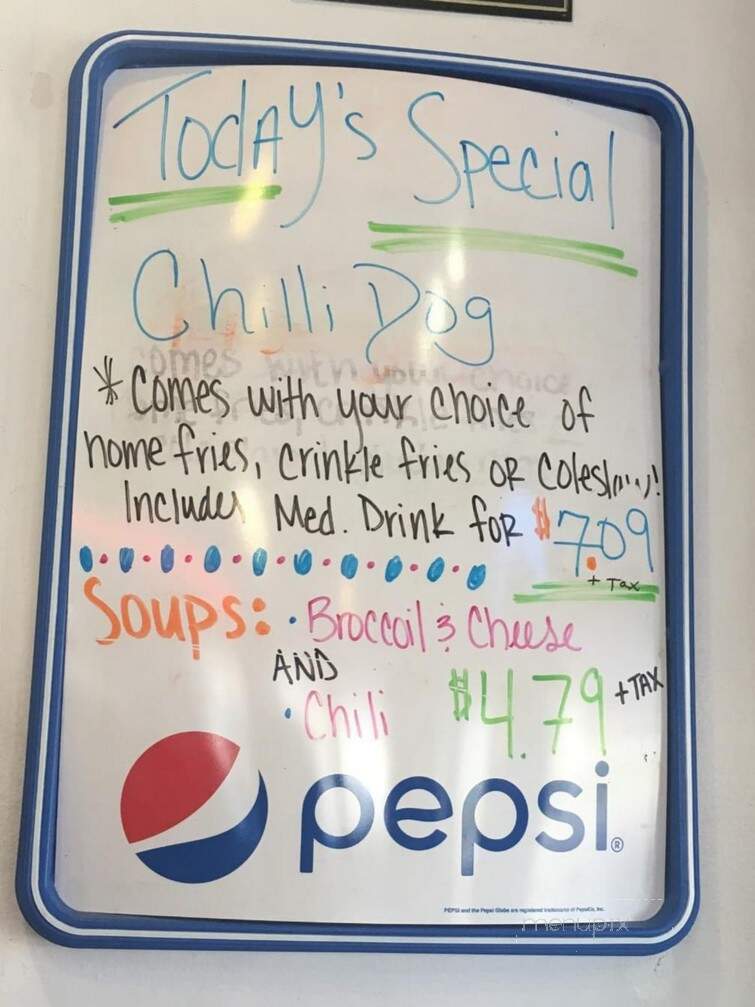 Today's Special
Chilli Dog
* Comes with your choice of
home fries, crinkle fries or coleslaw!
Includes Med. Drink for $7.09
+ Tax
Soups: • Broccoil & Cheese
AND
• Chili $4.79 + TAX
pepsi®
PEPSI and the Pepsi Globe are registered trademarks of PepsiCo, Inc.
menupix